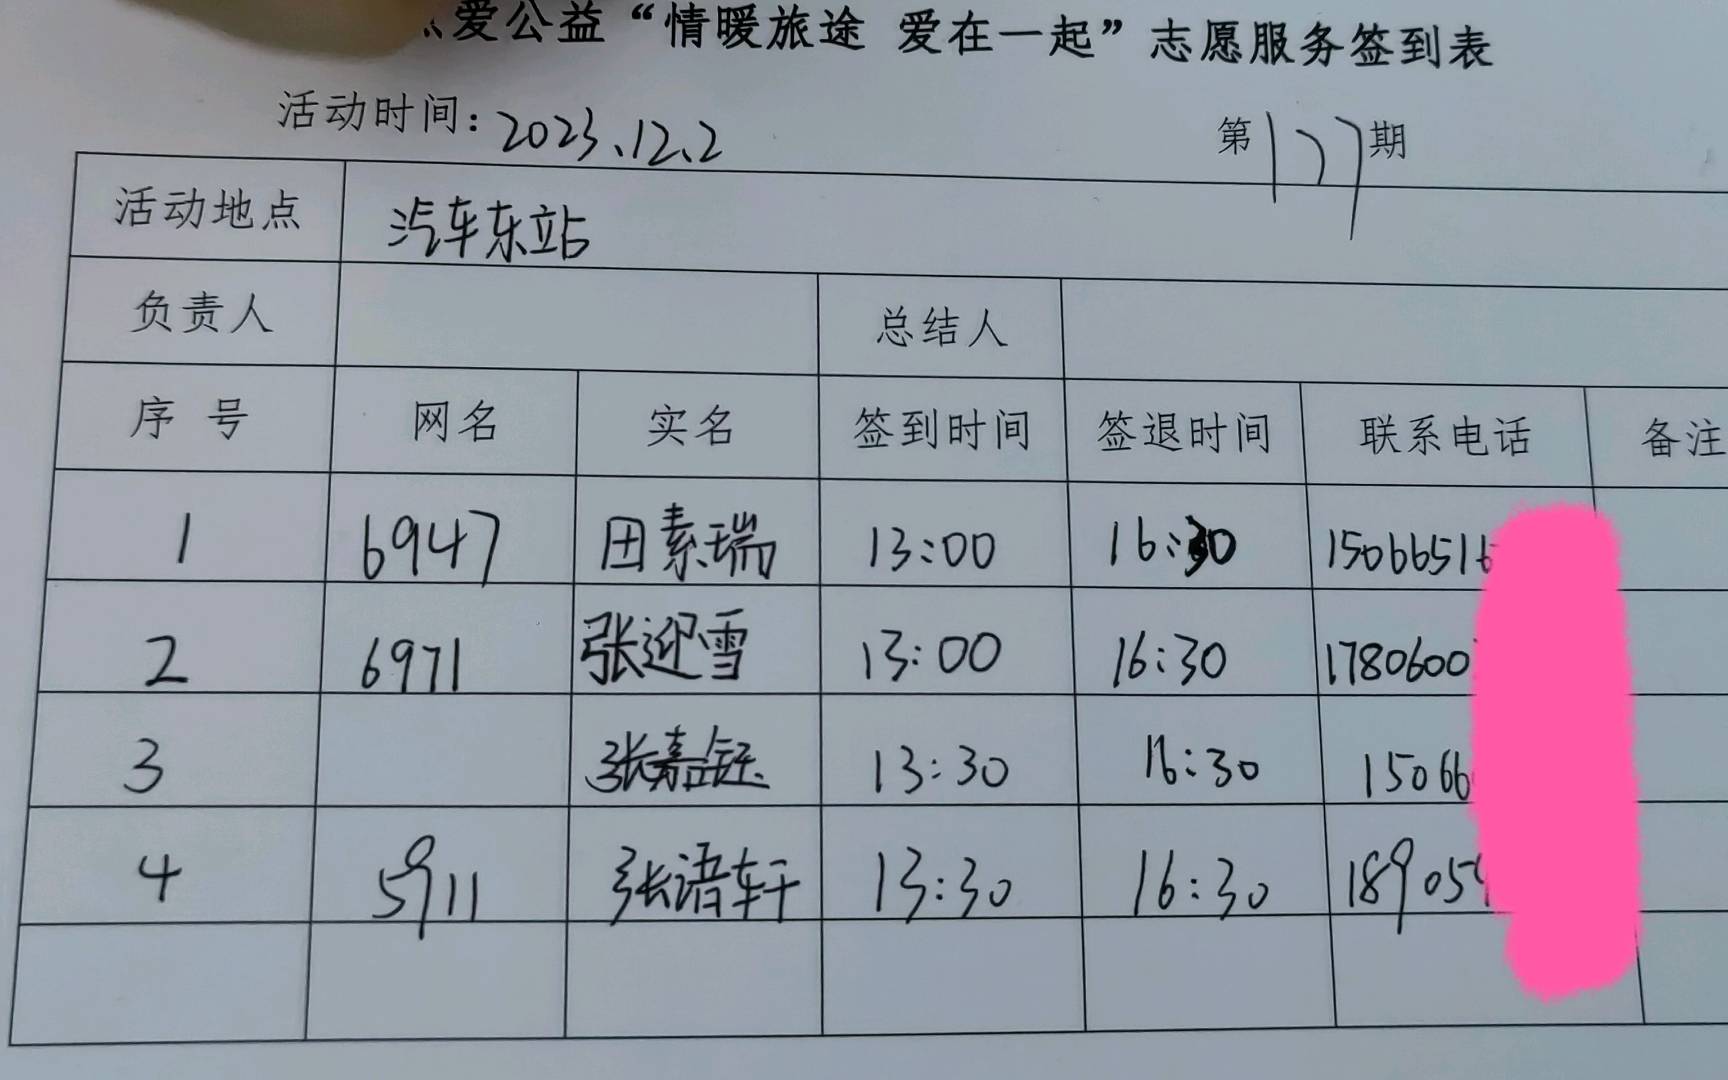 爱公益“情暖旅途 爱在一起”志愿服务签到表
活动时间：2023、12、2 第127期
活动地点 汽车东站
负责人 总结人
序号 网名 实名 签到时间 签退时间 联系电话 备注
1 6947 田素瑞 13:00 16:30 15066516
2 6971 张迎雪 13:00 16:30 1780600
3 张嘉钰 13:30 16:30 15066
4 5911 张诸轩 13:30 16:30 189059